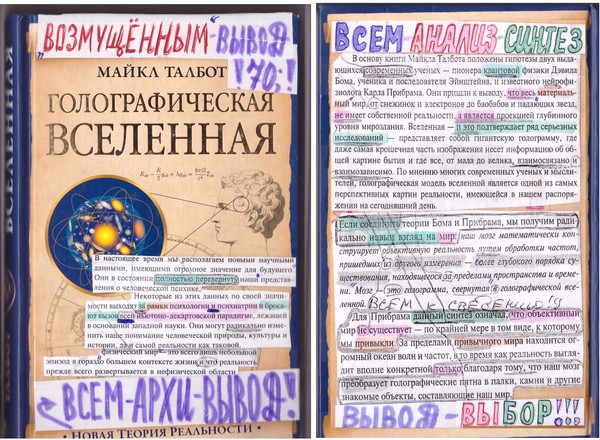 "ВОЗМУЩЁННЫМ"-ВЫВОД
!70;!
МАЙКЛ ТАЛБОТ
ГОЛОГРАФИЧЕСКАЯ
ВСЕЛЕННАЯ
В настоящее время мы располагаем новыми научными
данными, имеющими огромное значение для будущего.
Они в состоянии полностью перевернуть наши представ-
ления о человеческой психике,
Некоторые из этих данных по своей значи-
мости выходят за рамки психологии и психиатрии и броса-
ют вызов всей ньютоно-декартовской парадигме, лежащей
в основании западной науки. Они могут радикально изме-
нить наше понимание человеческой природы, культуры и
истории, да и самой реальности как таковой.
физический мир — это всего лишь небольшой
эпизод в гораздо большем контексте жизни и что реальность
прежде всего развертывается в нефизической области.
ВСЕМ-АРХИ-ВЫВОД!
• НОВАЯ ТЕОРИЯ РЕАЛЬНОСТИ •
ВСЕМ АНАЛИЗ-СИНТЕЗ
В основу книги Майкла Талбота положены гипотезы двух выда-
ющихся современных ученых — пионера квантовой физики Дэвида
Бома, ученика и последователя Эйнштейна, и известного нейрофи-
зиолога Карла Прибрама. Они пришли к выводу, что весь материаль-
ный мир, от снежинок и электронов до баобабов и падающих звезд,
не имеет собственной реальности, а является проекцией глубинного
уровня мироздания. Вселенная — и это подтверждает ряд серьезных
исследований — представляет собой гигантскую голограмму, где
даже самая крошечная часть изображения несет информацию об об-
щей картине бытия и где все, от мала до велика, взаимосвязано и
взаимозависимо. По мнению многих современных ученых и мысли-
телей, голографическая модель вселенной является одной из самых
перспективных картин реальности, имеющейся в нашем распоря-
жении на сегодняшний день.
Если соединить теории Бома и Прибрама, мы получим ради-
кально новый взгляд на мир: наш мозг математически кон-
струирует объективную реальность путем обработки частот,
пришедших из другого измерения — более глубокого порядка су-
ществования, находящегося за пределами пространства и време-
ни. Мозг — это голограмма, свернутая в голографической все-
ленной.
ВСЕМ К СВЕДЕНИЮ!
Для Прибрама данный синтез означал, что объективный
мир не существует — по крайней мере в том виде, к которому
мы привыкли. За пределами привычного мира находится ог-
ромный океан волн и частот, в то время как реальность выгля-
дит вполне конкретной только благодаря тому, что наш мозг
преобразует голографические пятна в палки, камни и другие
знакомые объекты, составляющие наш мир.
ВЫВОД-ВЫБОР!!!